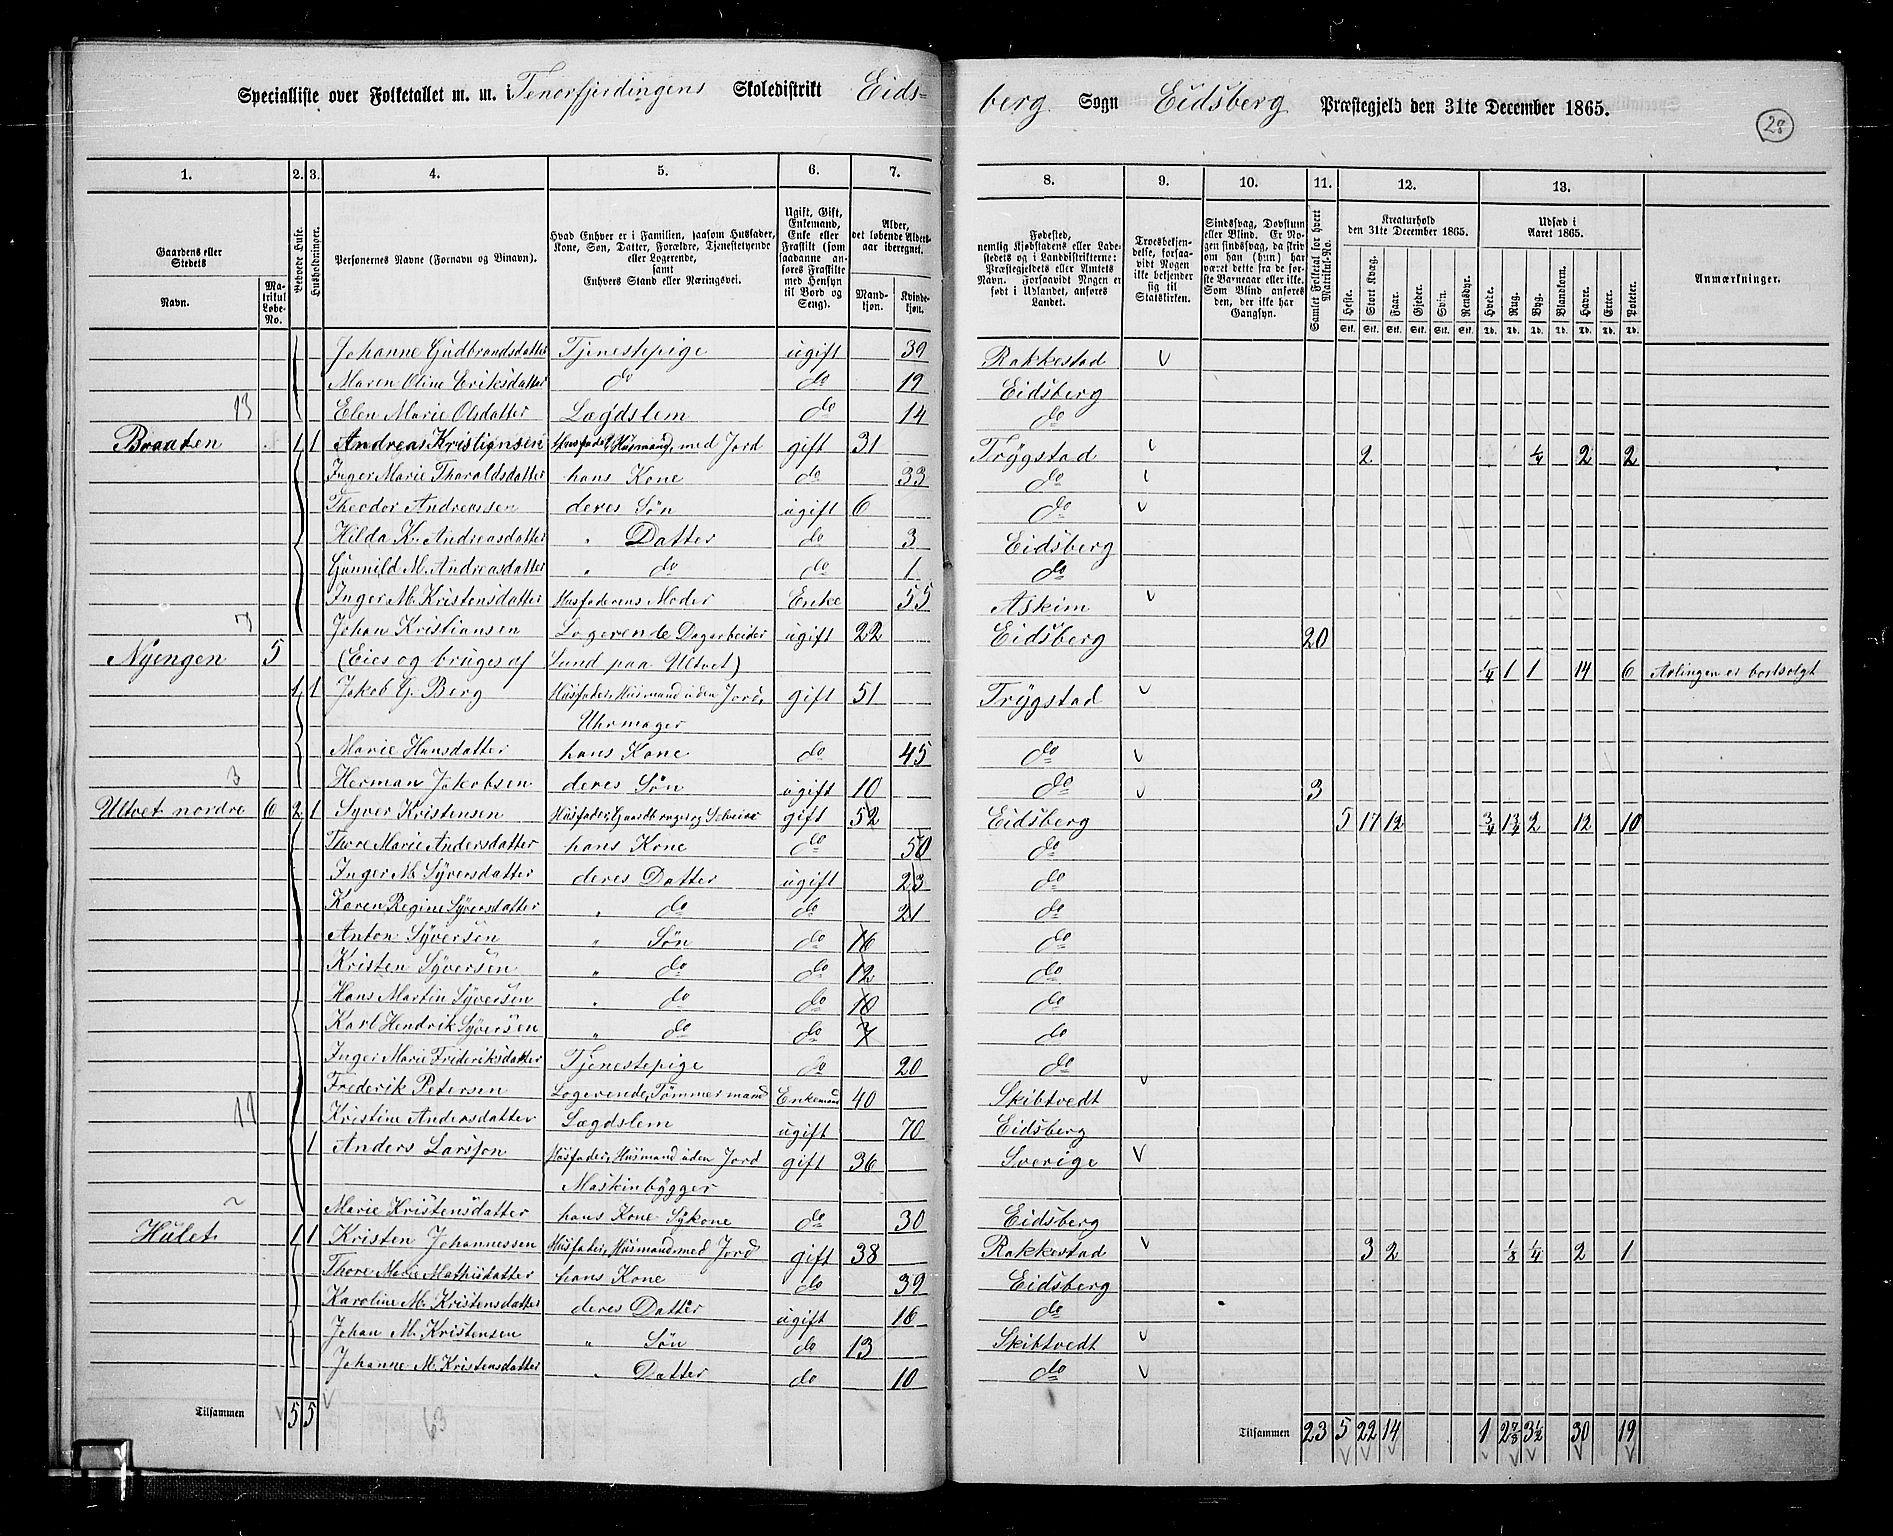 Specialliste over Folketallet m. m. i Tenorfjerdingens Skoledistrikt Eidsberg Sogn Eidsberg Præstegjeld den 31te December 1865.
28
1. 2. 3. 4. 5. 6. 7. 8. 9. 10. 11. 12. 13.
Gaardens eller Stedets
Navn.
Matrikul Løbe-No.
Beboede Huse.
Husholdninger.
Personernes Navne (Fornavn og Tilnavn).
Hvad Enhver er i Familien, saasom Husfader, Kone, Søn, Datter, Forældre, Tjenestetyende eller Logerende,
samt
Enhvers Stand eller Næringsvei.
Ugift, Gift, Enkemand, Enke eller Fraskilt (som saadanne anføres Fraskilte med Hensyn til Bord og Seng).
Alder, det løbende Alders-aar iberegnet.
Mandkjøn. Kvindekjøn.
Fødested, nemlig Kjøbstadens eller Ladestedets og i Landdistrikterne: Præstegjeldets eller Amtets Navn. Forsaavidt Nogen er født i Udlandet, anføres Landet.
Troesbekjendelse, forsaavidt Nogen ikke bekjender sig til Statskirken.
Sindssvag, Døvstum eller Blind. Er Nogen sindssvag, da skrives om han (hun) har været dette fra de første Barneaar eller ikke. Som Blind anføres den, der ikke har Gangsyn.
Samlet Folketal for hvert Matrikul-No.
Kreaturhold den 31te December 1865.
Heste. Stort Kvæg. Faar. Gjeder. Svin. Rensdyr.
Udsæd i Aaret 1865.
Hvede. Rug. Byg. Blandkorn. Havre. Erter. Poteter.
Anmærkninger.
Johanne Gudbrandsdatter Tjenestepige ugift 39 Rakkestad
Maren Oline Eriksdatter do do 19 Eidsberg
13 Elen Marie Olsdatter Lægdslem do 14 do
Braaten 1 1 Andreas Kristiansen Husfader, Husmand med Jord gift 31 Trygstad 2 1/4 2 2
Inger Marie Tharaldsdatter hans Kone do 33 do
Theodor Andreassen deres Søn ugift 6 do
Hilda K. Andreasdatter " Datter do 3 Eidsberg
Gunnild M. Andreasdatter " do do 1 do
Inger M. Kristensdatter Husfaderens Moder Enke 55 Askim
7 Johan Kristiansen Logerende Dagarbeider ugift 22 Eidsberg 20
Nyengen 5 (Eies og bruges af Lund paa Ultvet) 1/4 1 1 14 6 Avlingen er bortsolgt
1 1 Jakob G. Berg Husfader, Husmand uden Jord, gift 51 Trygstad
Uhrmager
Marie Hansdatter hans Kone do 45 do
3 Herman Jakobsen deres Søn ugift 10 do 3
Ultvet nordre 6 2 1 Syver Kristensen Husfader, Gaardbruger og Selveier gift 52 Eidsberg 5 17 12 3/4 1 3/4 2 12 10
Thore Marie Andersdatter hans Kone do 50 do
Inger M. Syversdatter deres Datter ugift 23 do
Karen Regine Syversdatter " do do 21 do
Anton Syversen " Søn do 16 do
Kristen Syversen " do do 12 do
Hans Martin Syversen " do do 10 do
Karl Hendrik Syversen " do do 7 do
Inger Marie Frideriksdatter Tjenestepige do 20 do
Frederik Petersen Logerende, Tømmermand Enkemand 40 Skibtvedt
11 Kristine Andersdatter Lægdslem ugift 70 Eidsberg
1 Anders Larsson Husfader, Husmand uden Jord gift 36 Sverige
Maskinbygger
2 Marie Kristensdatter hans Kone Sykone do 30 Eidsberg
Hulet 1 1 Kristen Johannessen Husfader, Husmand med Jord gift 38 Rakkestad 3 2 1/8 1/4 2 1
Thore Marie Mathisdatter hans Kone do 39 Eidsberg
Karoline M. Kristensdatter deres Datter ugift 16 do
Johan M. Kristensen " Søn do 13 Skibtvedt
Johanne M. Kristensdatter " Datter do 10 do
Tilsammen 5 5 63 Tilsammen 23 5 22 14 1 2 7/8 3 1/2 30 19